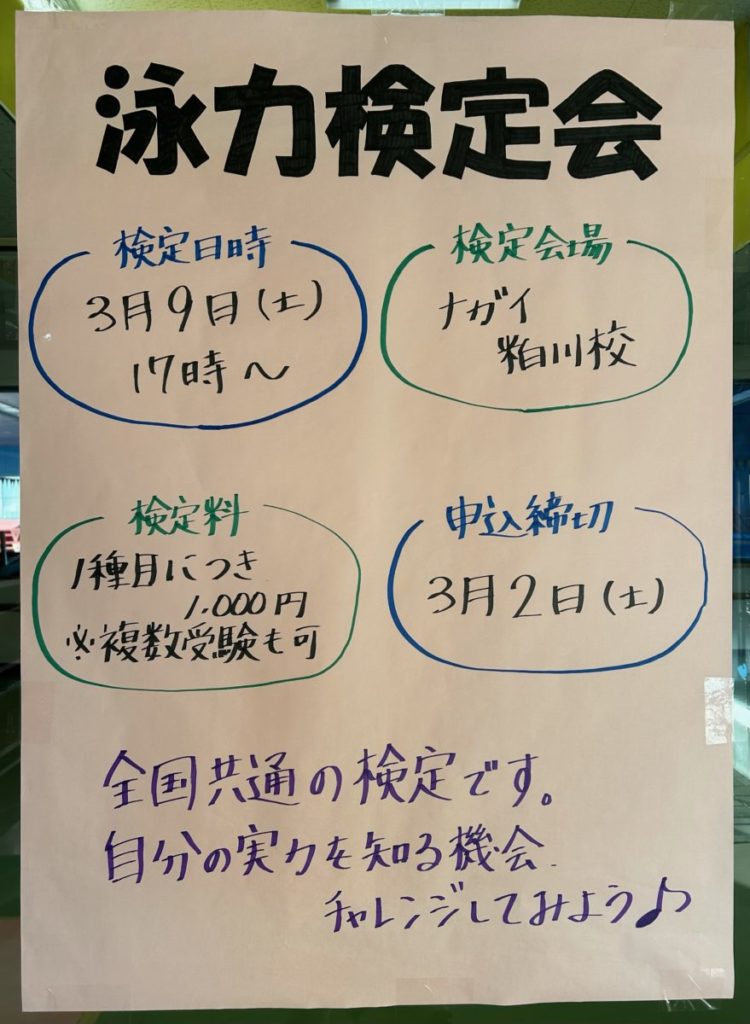 泳力検定会
検定日時
3月9日(土)
17時～
検定会場
ナガイ
粕川校
検定料
1種目につき
1,000円
※複数受験も可
申込締切
3月2日(土)
全国共通の検定です。
自分の実力を知る機会.
チャレンジしてみよう♪